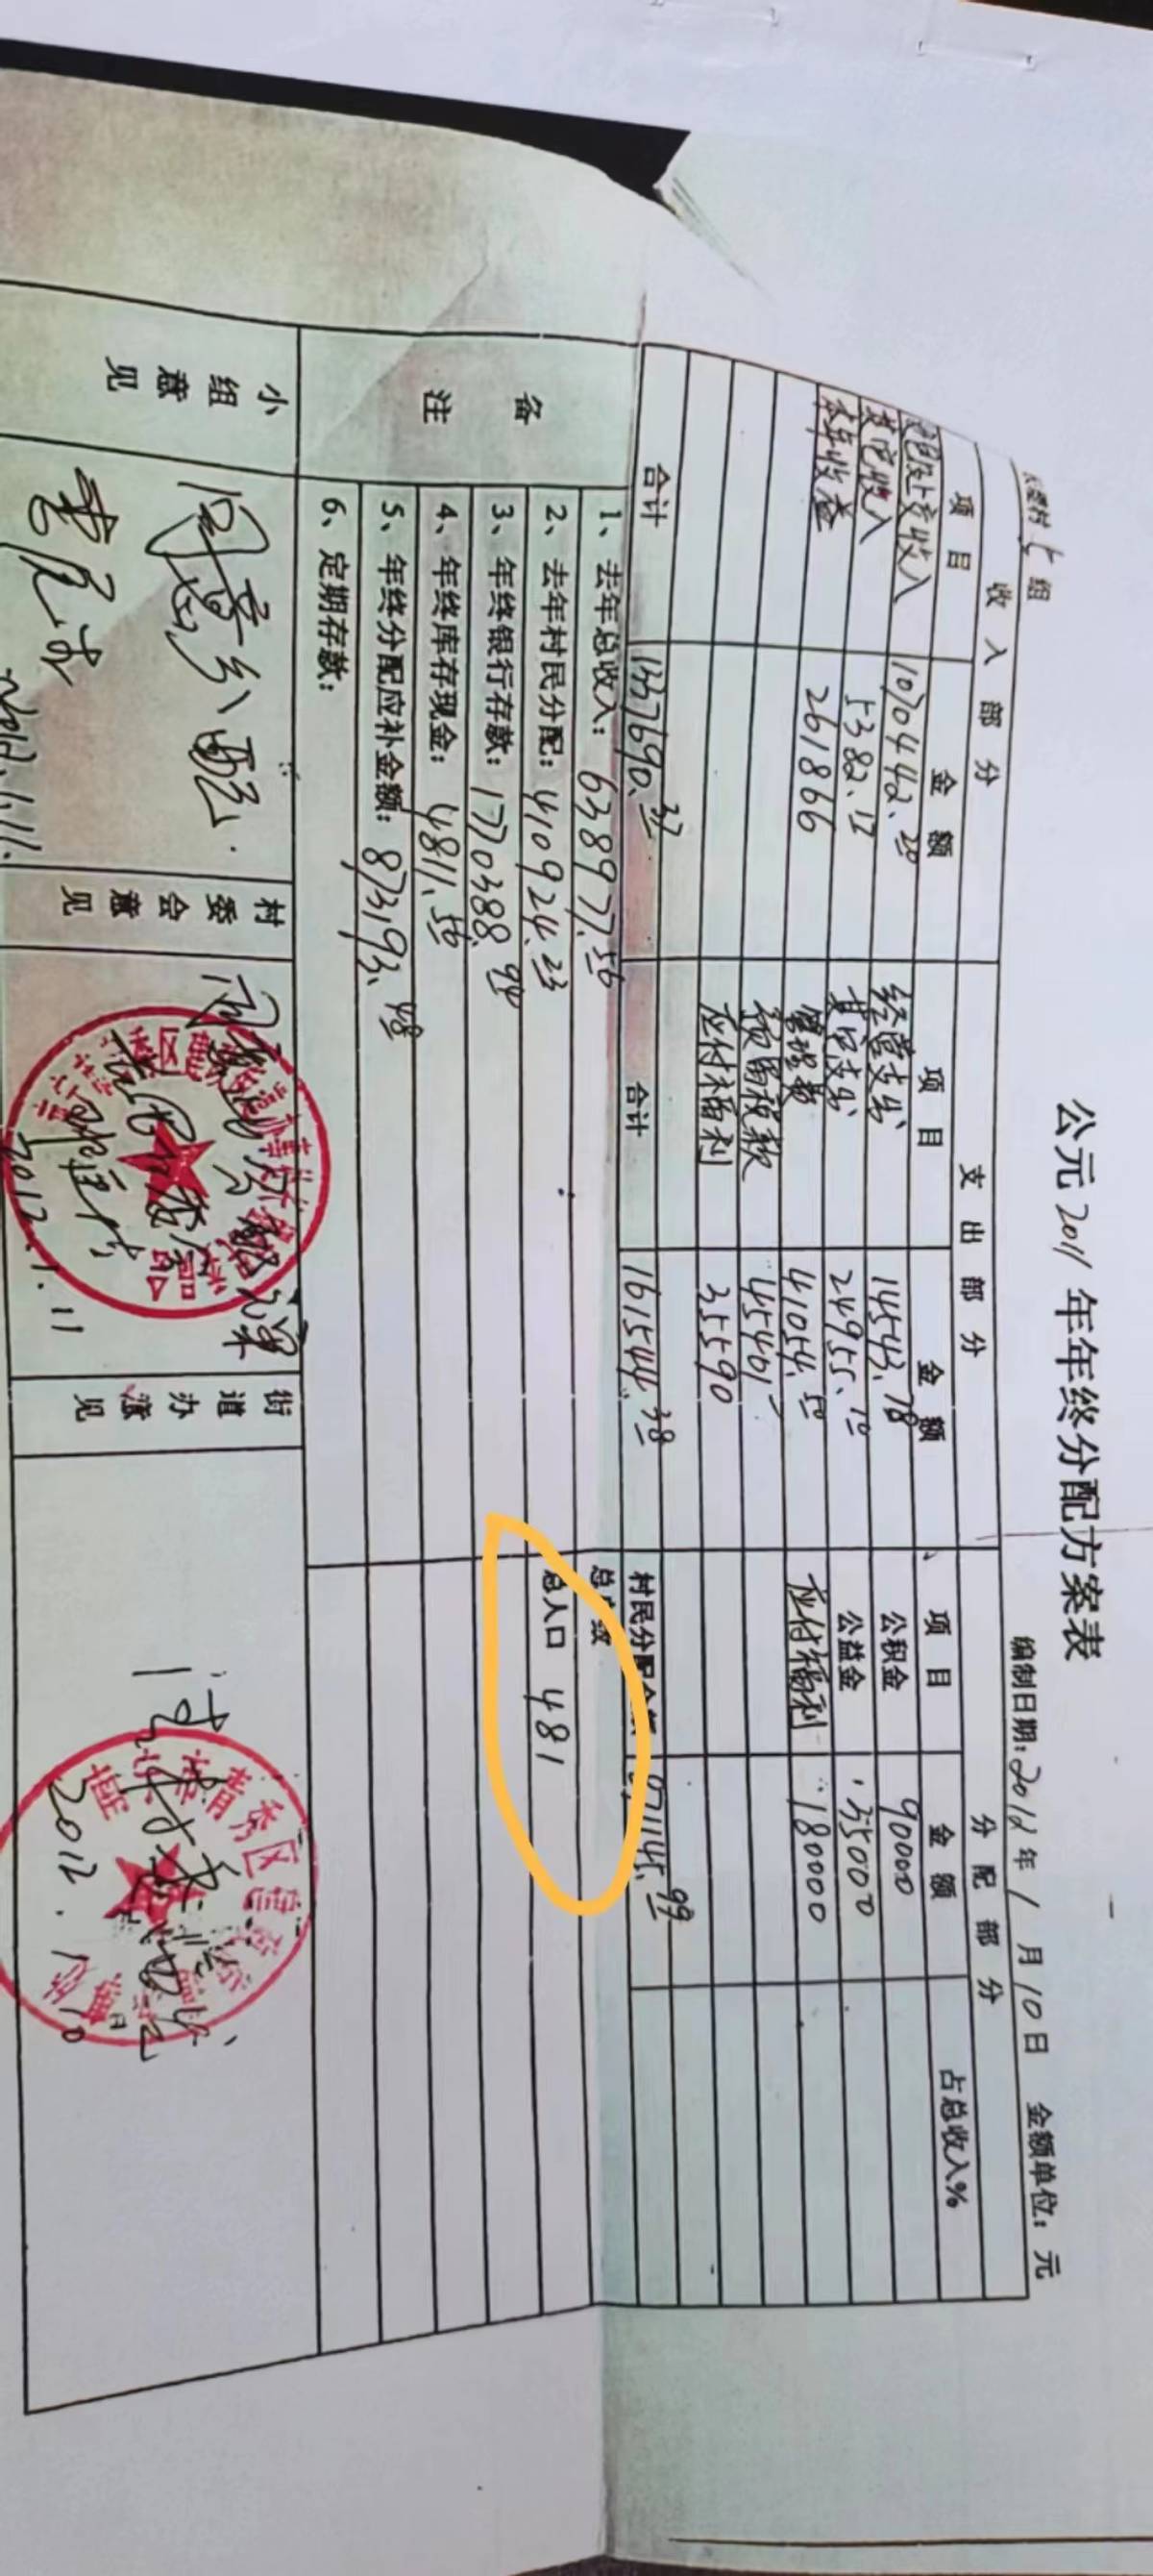 公元2011年年终分配方案表
七组
编制日期:2012年1月10日 金额单位:元
收入部分 支出部分 分配部分
项目 金额 项目 金额 项目 金额 占总收入%
收入 1070442.20 经营支出 14543.78 公积金 90000
其它收入 5382.17 其它支出 24955.10 公益金 35000
本年收益 261866 管理费 41054.50 应付福利 180000
预留税款 45401
应付福利 35590
合计 1337690.37 合计 161544.38 村民分配 871145.99
备注
1、去年总收入: 638977.56
2、去年村民分配: 410924.23 总人口 481
3、年终银行存款: 1770388.94
4、年终库存现金: 4811.56
5、年终分配应补金额: 873193.48
6、定期存款:
小组意见 同意分配 2012.1.11.
村委会意见 2012.1.11
街道办意见 2012.1.10
南宁市青秀区